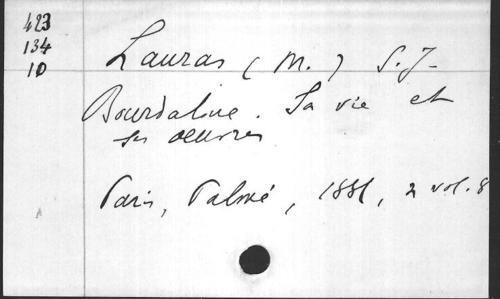 423
134
10
Lauras (M.) S.J.
Bourdaloue. Sa vie et
ses oeuvres
Paris, Palmé, 1881, 2 vol. 8